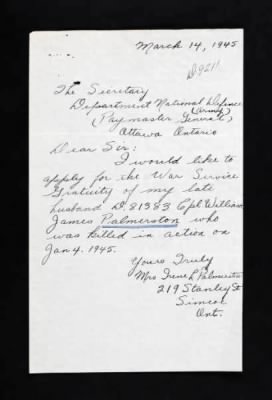 March 14, 1945
D9211
The Secretary
Department National Defence
(Army)
(Paymaster General)
Ottawa Ontario
Dear Sir:
I would like to
apply for the War Service
Gratuity of my late
husband D.81383 Cpl William
James Palmerston who
was killed in action on
Jan 4. 1945.
Yours Truly
Mrs Irene L Palmerston
219 Stanley St
Simcoe
Ont.